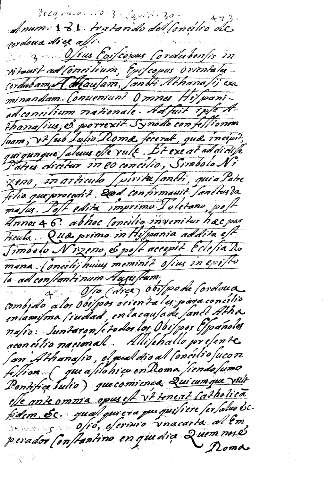 al num. 181. tratando del Concilio de
Cordova dize assi.
Osius Episcopus Cordubensis in
vitavit ad Concilium, Episcopos orientales
Cordubam, ad causam, Sancti Athanasii exa
minandam. Convenerunt omnes Hispani
ad concilium nationale. Adfuit ipse A
thanasius, et porrexit Synodo confessionem
suam, ut sub Iulio Romæ fecerat, quæ incipit:
quicunque salvus esse vult. Et
Patres in eo concilio, Simbolo Ni
zeno, in articulo spiritu sancti, qui a Patre
filio que procedit. Quod confirmavit Sanctus Da
masus. Post edita in primo Toletano, post
Annos 46. ab hoc Concilio invenitur hæc par
ticula. Quæ primo in Hispania addita est
Simbolo Nizeno, et post accepit Eclesia Ro
mana. Concilii huius meminit Osius in episto
la ad constantinum Augustum.
Osio (dize) obispo de Cordova
combido a los obispos orientales para concilio
en la misma ciudad, en la causa de sanct Atha
nasio: Juntaronse todos los Obispos Españoles
a concilio nacional. Alli se hallo presente
san Athanasio, el qual dio al Concilio su con
fession. (que assi hizo en Roma siendo sumo
Pontifice Iulio) que comiença Quicunque vult
esse ante omnia opus est ut teneat Catholicā
fidem. &c. qualquiera que quisiere ser salvo &c.
Osio, escrivio una carta al Em
perador Constantino en que dize Quem nosse
Roma